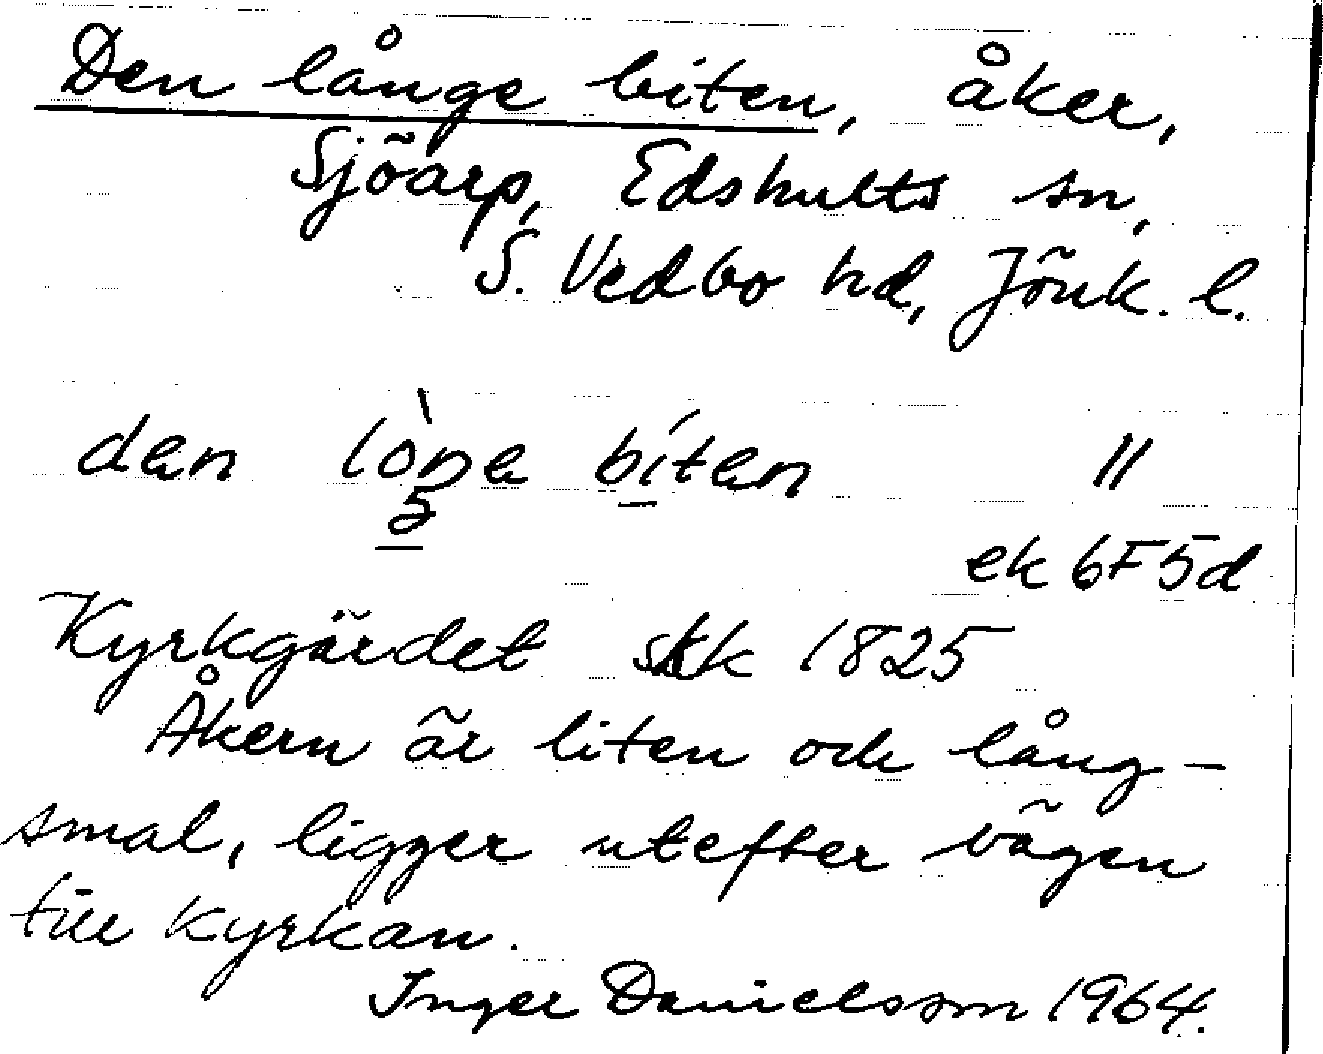 Den långe biten, åker,
Sjöarp, Edshults sn,
S. Vedbo hd, Jönk. l.
dan lòŋa bítan //
5
ek 6F5d
Kyrkgärdet skk 1825
Åkern är liten och lång-
smal, ligger utefter vägen
till kyrkan.
Inger Danielsson 1964.